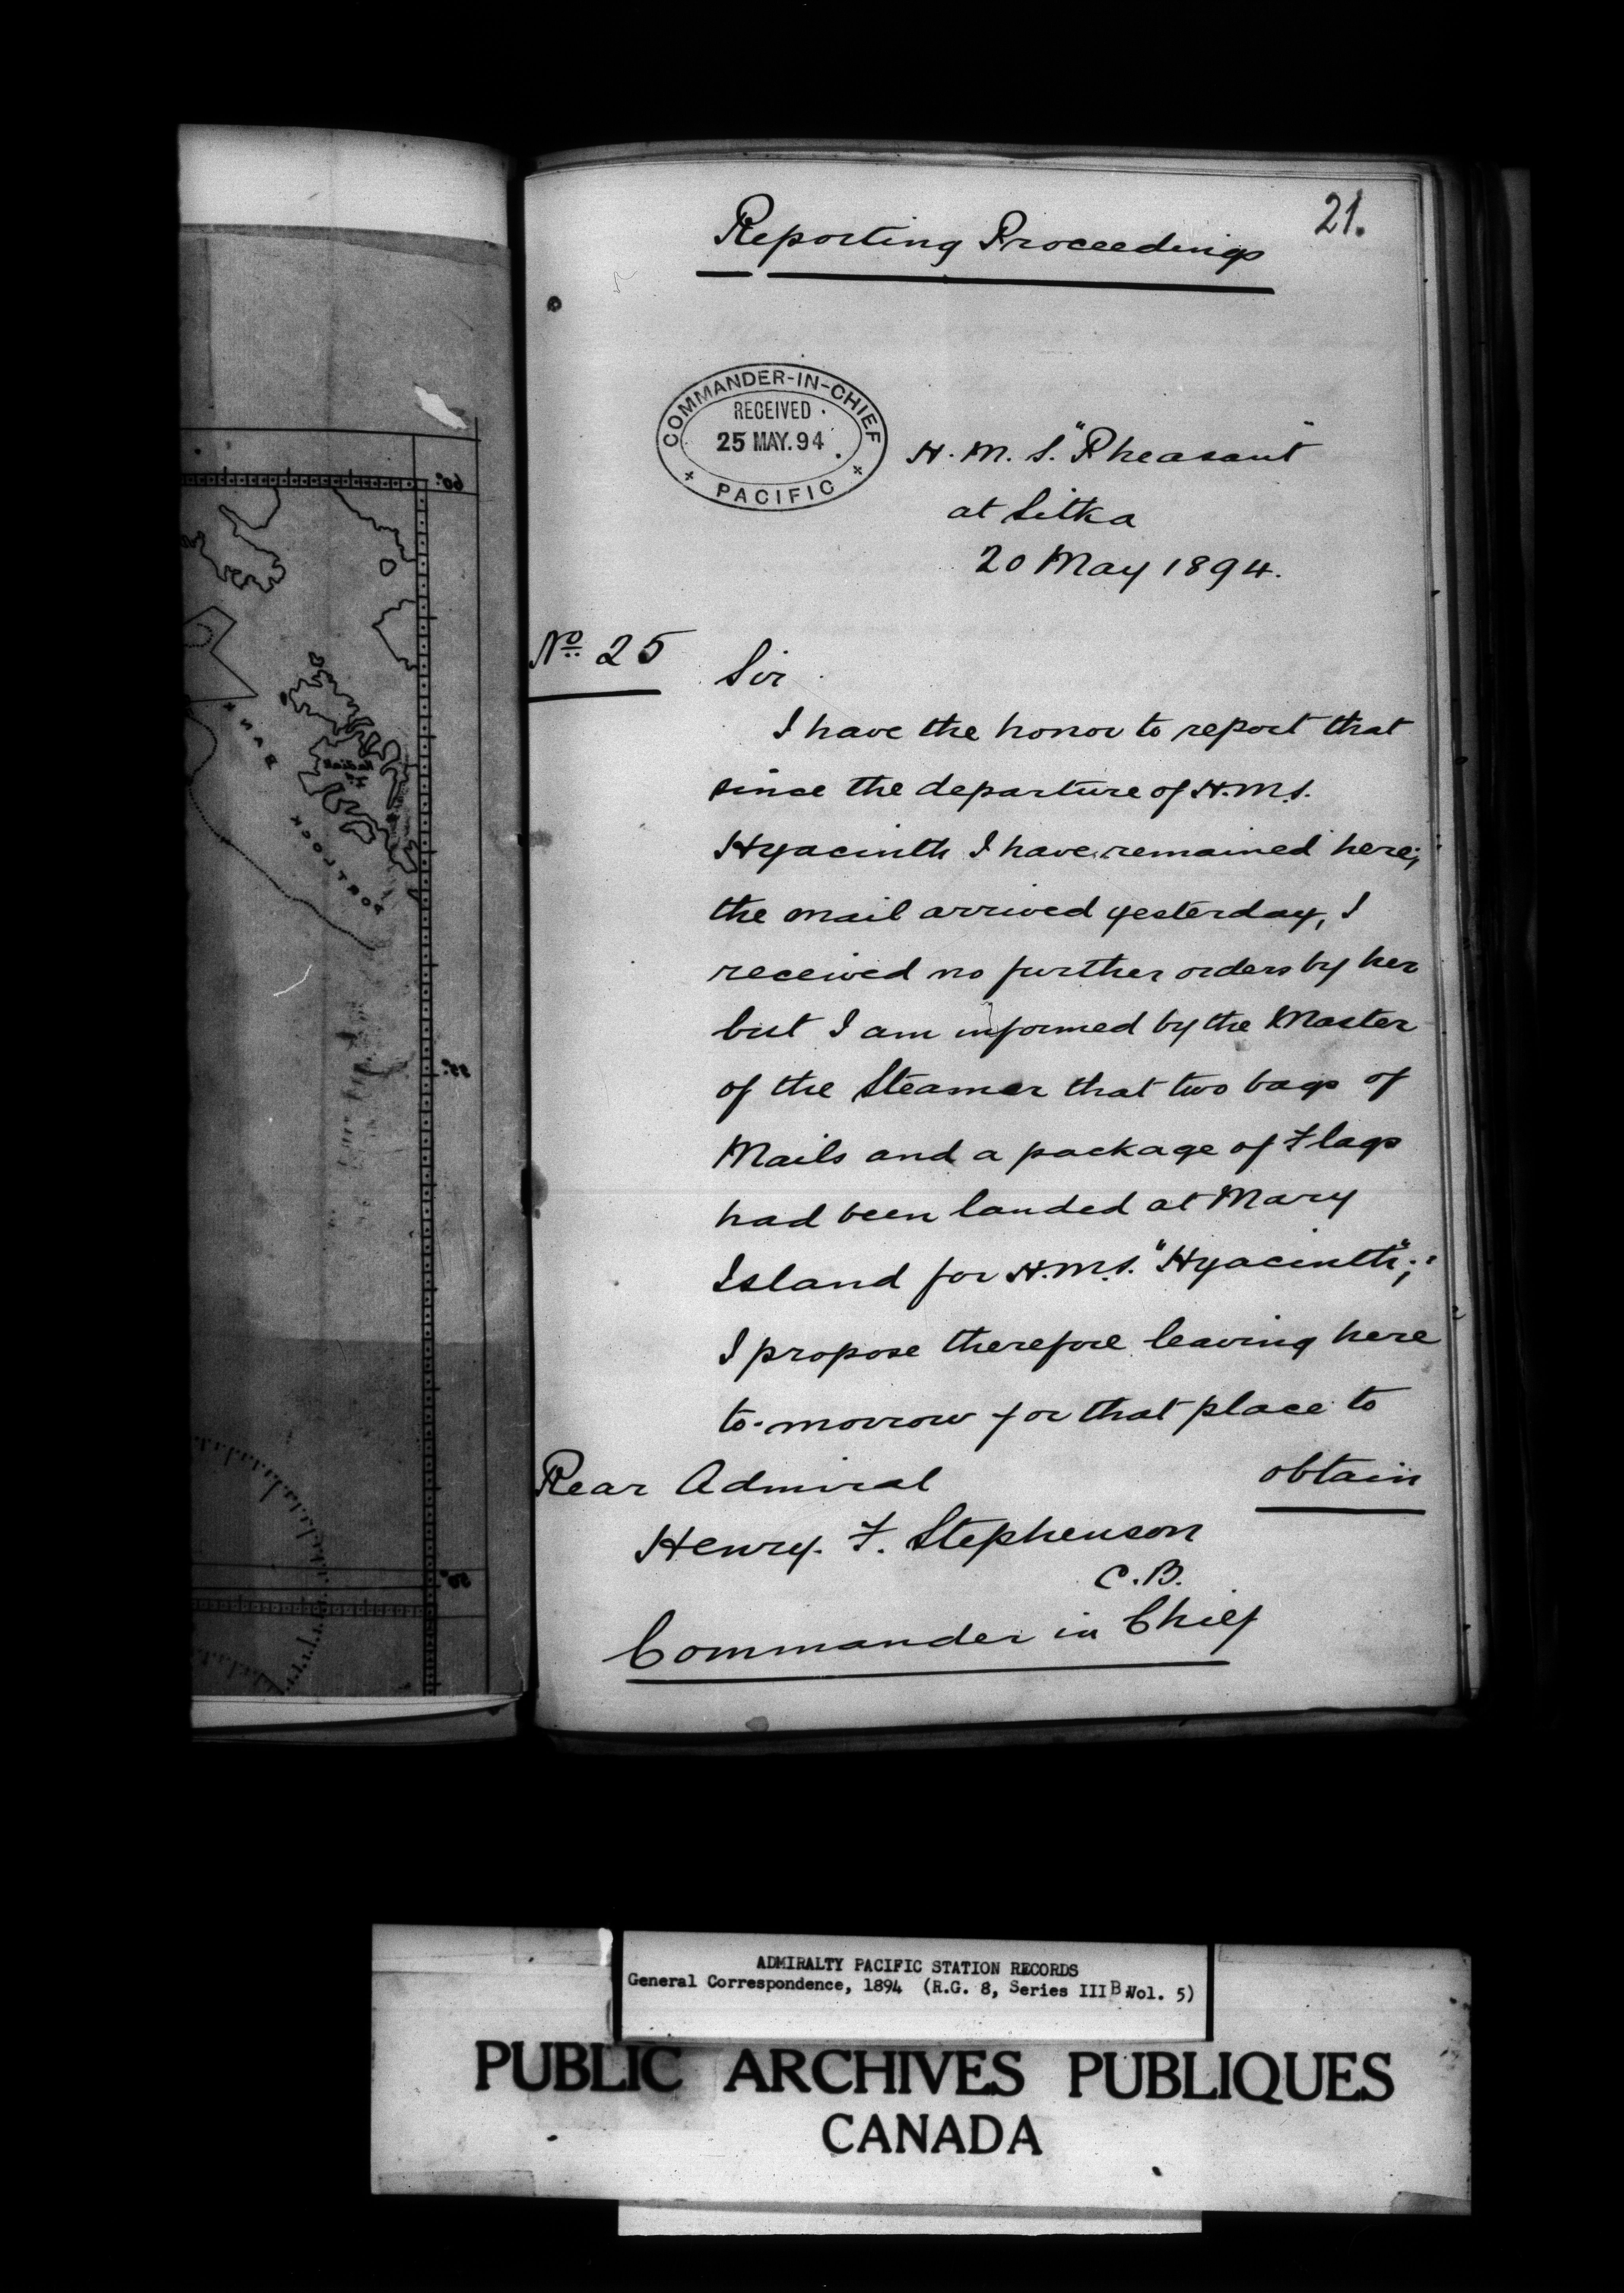 21.
Reporting Proceedings
COMMANDER-IN-CHIEF
RECEIVED
25 MAY. 94
PACIFIC
H. M. S. "Pheasant"
at Sitka
20 May 1894.
No. 25
Sir
I have the honor to report that
since the departure of H.M.S.
Hyacinth I have remained here;
the mail arrived yesterday, I
received no further orders by her
but I am informed by the Master
of the Steamer that two bags of
Mails and a package of Flags
had been landed at Mary
Island for H.M.S. "Hyacinth";
I propose therefore leaving here
to-morrow for that place to
obtain
Rear Admiral
Henry. F. Stephenson
C.B.
Commander in Chief
60°
BANK
Kadiak
Id.
PORTLOCK
55°
50°
ADMIRALTY PACIFIC STATION RECORDS
General Correspondence, 1894 (R.G. 8, Series III B Vol. 5)
PUBLIC ARCHIVES PUBLIQUES
CANADA